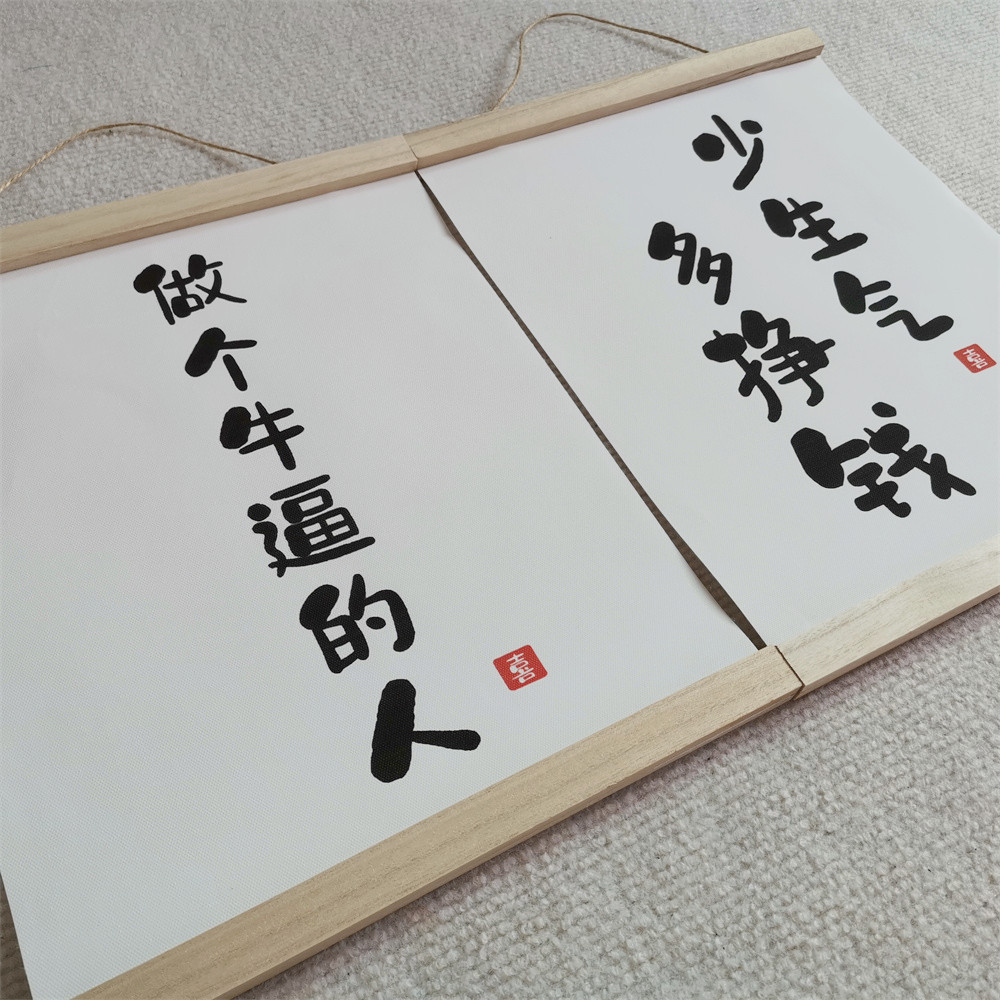 少生气
多挣钱
喜
做个牛逼的人
喜